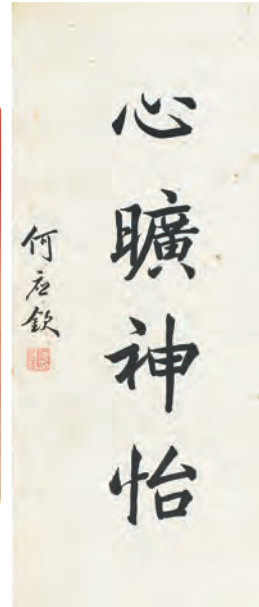 心曠神怡
何应欽